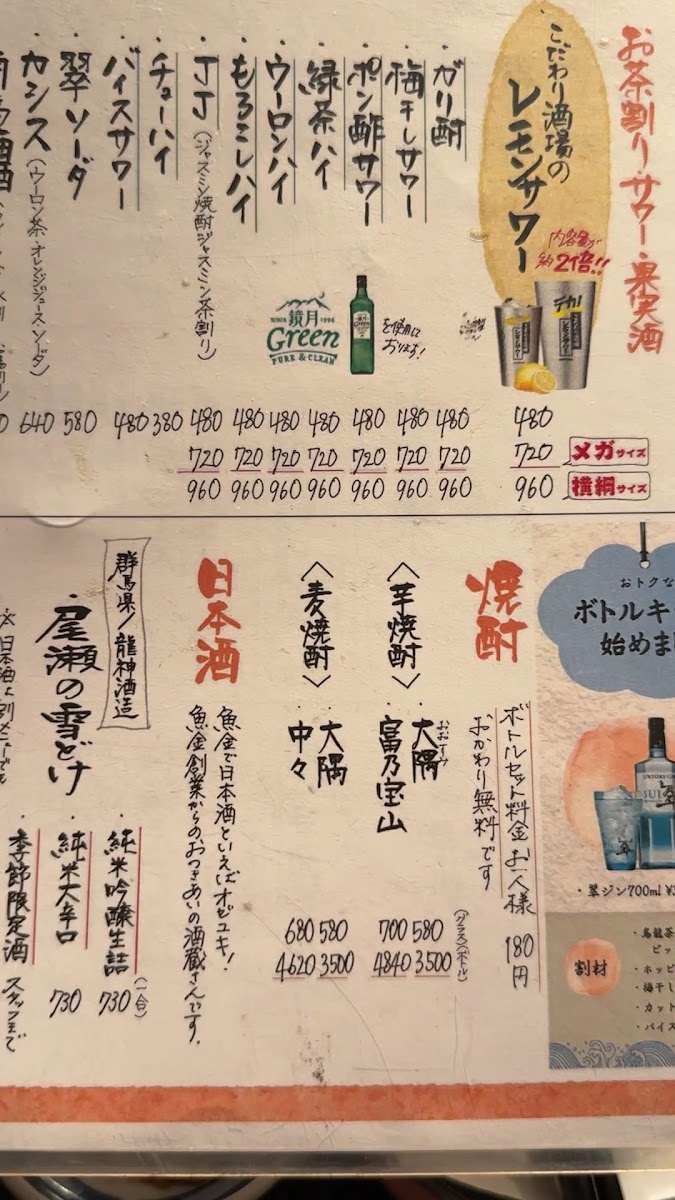 お茶割り・サワー・果実酒
こだわり酒場の
レモンサワー
内容量が
約2倍!!
デカ
480
720 メガサイズ
960 横綱サイズ
・ガリ酎
480
720
960
・梅干しサワー
480
720
960
・ポン酢サワー
480
720
960
・緑茶ハイ
480
720
960
・ウーロンハイ
480
720
960
・もろこしハイ
480
720
960
・JJ(ジャスミン焼酎ジャスミン茶割り)
480
720
960
SINCE 鏡月 1996
Green
PURE & CLEAN
を使用に
おります!
・チューハイ
380
・バイスサワー
480
・翠ソーダ
580
・カシス(ウーロン茶・オレンジジュース・ソーダ)
640
焼酎
ボトルセット料金お一人様 180円
おかわり無料です
(グラス)(ボトル)
〈芋焼酎〉
・大隅
おおすみ
580
3500
富乃宝山
700
4840
〈麦焼酎〉
・大隅
580
3500
中々
680
4620
日本酒
魚金で日本酒といえばオゼユキ!
魚金創業からのおつきあいの酒蔵さんです。
群馬県/龍神酒造
・尾瀬の雪どけ
・純米吟醸生詰
(一合)
730
・純米大辛口
730
・季節限定酒
スタッフまで
※日本酒は別メニューでも
おトクな
ボトルキ
始めま
SUNTORY GIN
翠
・翠ジン700ml
割材
・烏龍茶
ピッ
・ホッピ
・梅干し
・カット
・バイス